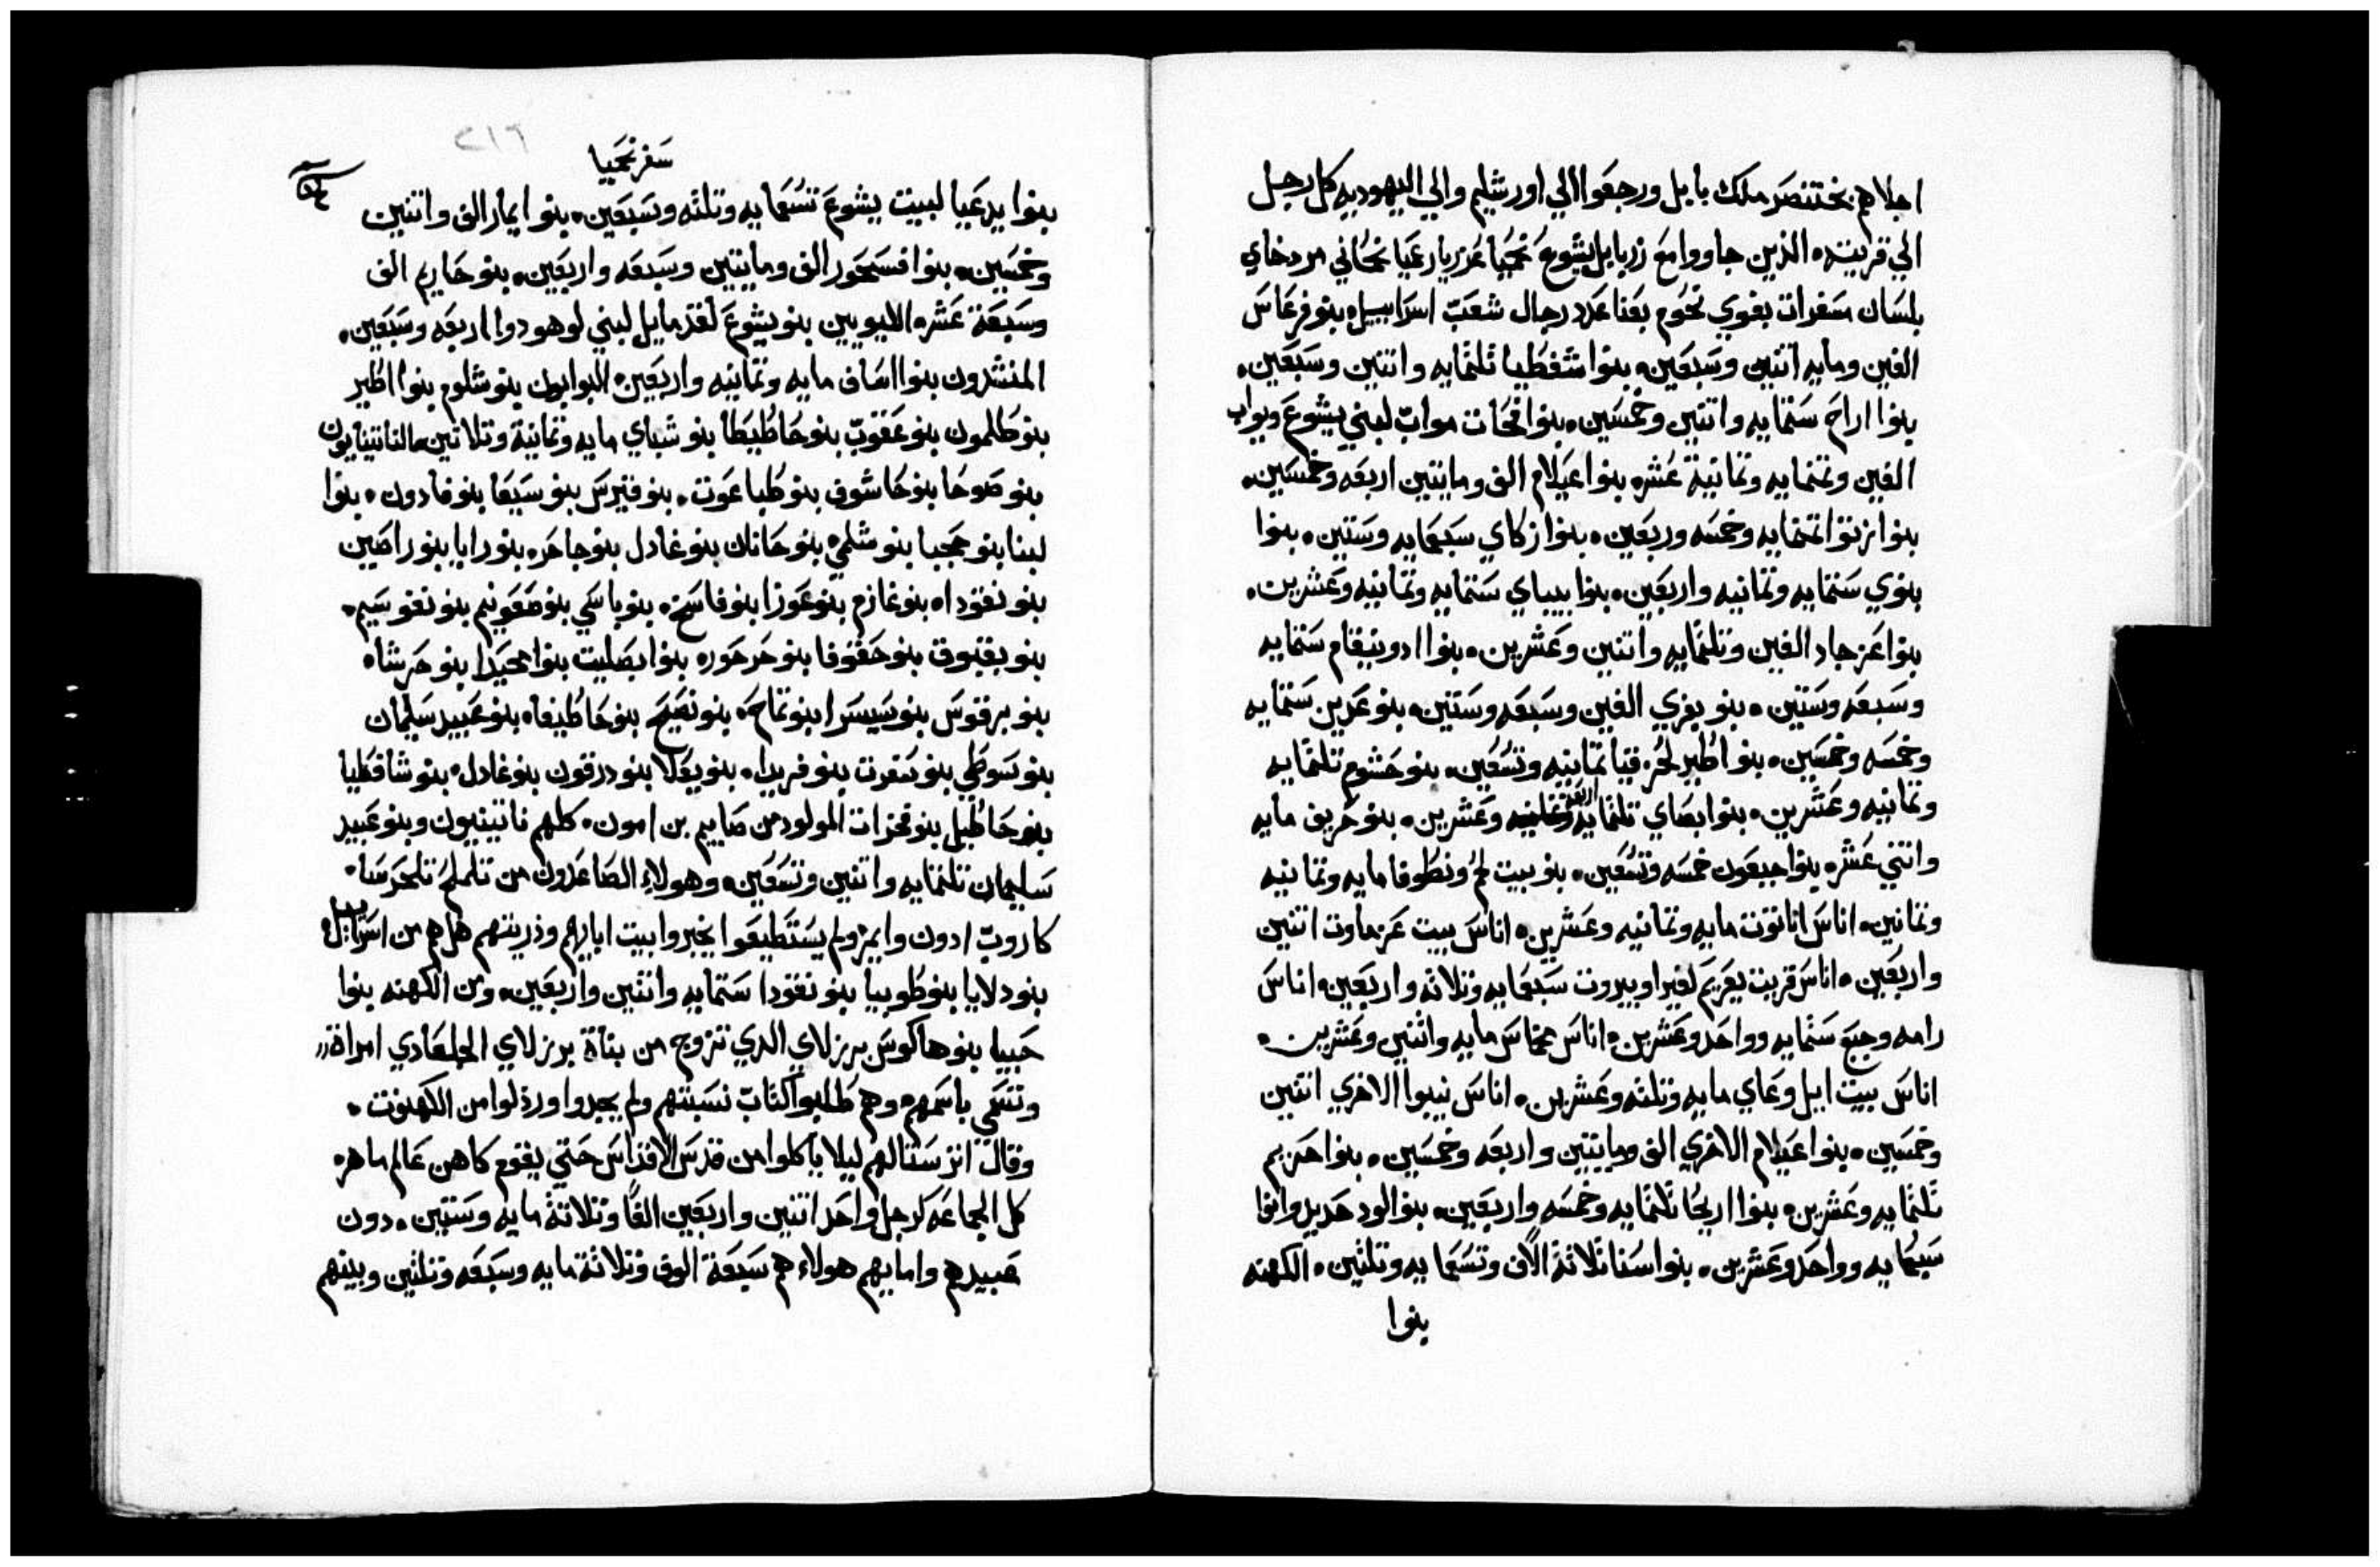 اجلاهم بختنصر ملك بابل ورجعوا الي اورشليم والي اليهوديه كل رجل
الي قريته الذين جاووا مع زربابل يشوع نحميا عزريا رعميا نحماني مردخاي
بلسان سفرات بغوي نحوم بعنا عدد رجال شعب اسراييل بنو فرعاس
الفين ومايه اتنين وسبعين بنوا شفطيا تلتمايه واتنين وسبعين
بنوا اراح ستمايه واتنين وخمسين بنوا فحات مواب لبني يشوع ويواب
الفين وتمنمايه وتمانية عشره بنوا عيلام الف ومايتين اربعه وخمسين
بنوا زتوا تمنمايه وخمسه وربعين بنوا زكاي سبعمايه وستين بنوا
بنوي ستمايه وتمانيه واربعين بنوا بيباي ستمايه وتمانيه وعشرين
بنوا عزجاد الفين وتلتمايه واتنين وعشرين بنوا ادونيقام ستمايه
وسبعه وستين بنو بغوي الفين وسبعه وستين بنو عدين ستمايه
وخمسه وخمسين بنوا اطير لحزقيا تمانيه وتسعين بنو حشوم تلتمايه
وتمانيه وعشرين بنوا بصاي تلتمايه اربعه وعشرين بنو حريف مايه
واتني عشره بنوا جبعون خمسه وتسعين بنو بيت لحم ونطوفا مايه وتمانيه
وتمانين اناس اناتوت مايه وتمانيه وعشرين اناس بيت عزماوت اتنين
واربعين اناس قريت يعريم لفيرا وبيروت سبعمايه وتلاته واربعين اناس
رامه وجبع ستمايه وواحد وعشرين اناس مخماس مايه واتنين وعشرين
اناس بيت ايل وعاي مايه وتلته وعشرين اناس نيبوا الاخري اتنين
وخمسين بنوا عيلام الاخري الف ومايتين واربعه وخمسين بنوا حريم
تلتمايه وعشرين بنوا اريحا تلتمايه وخمسه واربعين بنوا لود حديد وانوا
سبعمايه وواحد وعشرين بنوا سنا ثلاثة الاف وتسعمايه وتلتين الكهنه
بنوا
سفر نحميا
٢١٦
بنوا يدعيا لبيت يشوع تسعمايه وتلته وسبعين بنوا يمار الف واتنين
وخمسين بنوا فسحور الف ومايتين وسبعه واربعين بنو حاريم الف
وسبعة عشره الليويين بنو يشوع لقدمايل لبني لوهودوا اربعه وسبعين
المنشدون بنوا اساف مايه وتمانيه واربعين البوابون بنو شلوم بنوا اطير
بنو طلمون بنو عقوب بنو حاطيطا بنو شباي مايه وتمانية وتلاتين الناتينايون
بنو صوحا بنو حاشوف بنو طباعوت بنو قيرس بنو سيعا بنو فادون بنوا
لبنا بنو حجبا بنو شلمي بنو حانان بنو غادل بنو جاحر بنو رايا بنو راصين
بنو نقودا بنو غازم بنو عوزا بنو فاسح بنو باسي بنو معونيم بنو نفوسيم
بنو بقبوق بنو حقوفا بنو حرحوره بنوا بصليت بنوا محيدا بنو حرشا
بنو برقوس بنو سيسرا بنو تماح بنو نصيح بنو حاطيفا بنو عبيد سليمان
بنو سوطي بنو سفرت بنو فريدا بنو يعلا بنو درقون بنو غادل بنو شافطيا
بنو حاطيل بنو فخرات المولود من صابيم بن امون كلهم ناتينيون وبنو عبيد
سليمان تلتمايه واتنين وتسعين وهولاء الصاعدون من تلملح تلحرسا
كاروب ادون وايمر ولم يستطيعوا يخبروا بيت ابايهم وذريتهم هل هم من اسراييل
بنو دلايا بنو طوبيا بنو نقودا ستمايه واتنين واربعين ومن الكهنه بنوا
حبيا بنو هاكوس برزلاي الدي تزوج من بناة برزلاي الجلعادي امراة
وتسمي باسمهم وهم طلبوا كتاب نسبتهم ولم يجدوا ورذلوا من الكهنوت
وقال اترستا لهم ليلا ياكلوا من قدس الاقداس حتي يقوم كاهن عالم ماهر
كل الجماعه كرجل واحد اتنين واربعين الفا وتلاتة مايه وستين دون
عبيدهم وامايهم هولاء هم سبعة الوف وتلاتة مايه وسبعه وتلتين وبينهم